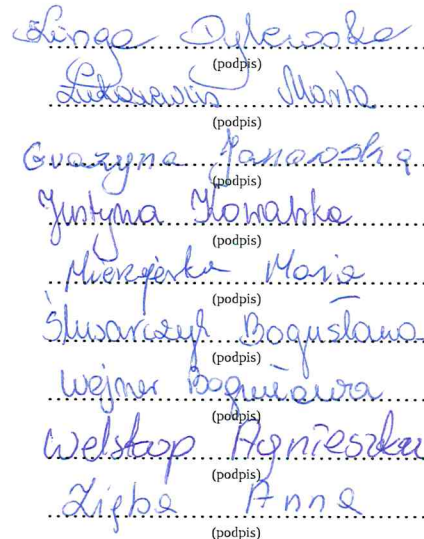 Kinga Dyberoska
(podpis)
Łukasiewicz Marta
(podpis)
Grażyna Janaroska
(podpis)
Justyna Kowalska
(podpis)
Mierzejewska Maria
(podpis)
Śliwarczyk Bogusława
(podpis)
Wejner Bogusława
(podpis)
Welskop Agnieszka
(podpis)
Zięba Anna
(podpis)